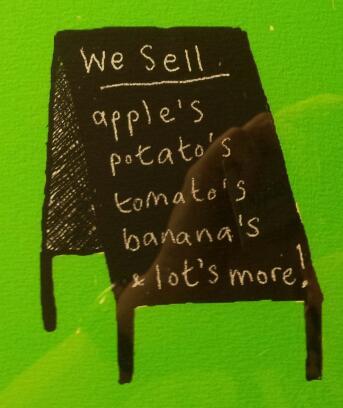 We Sell
apple's
potato's
tomato's
banana's
& lot's more!